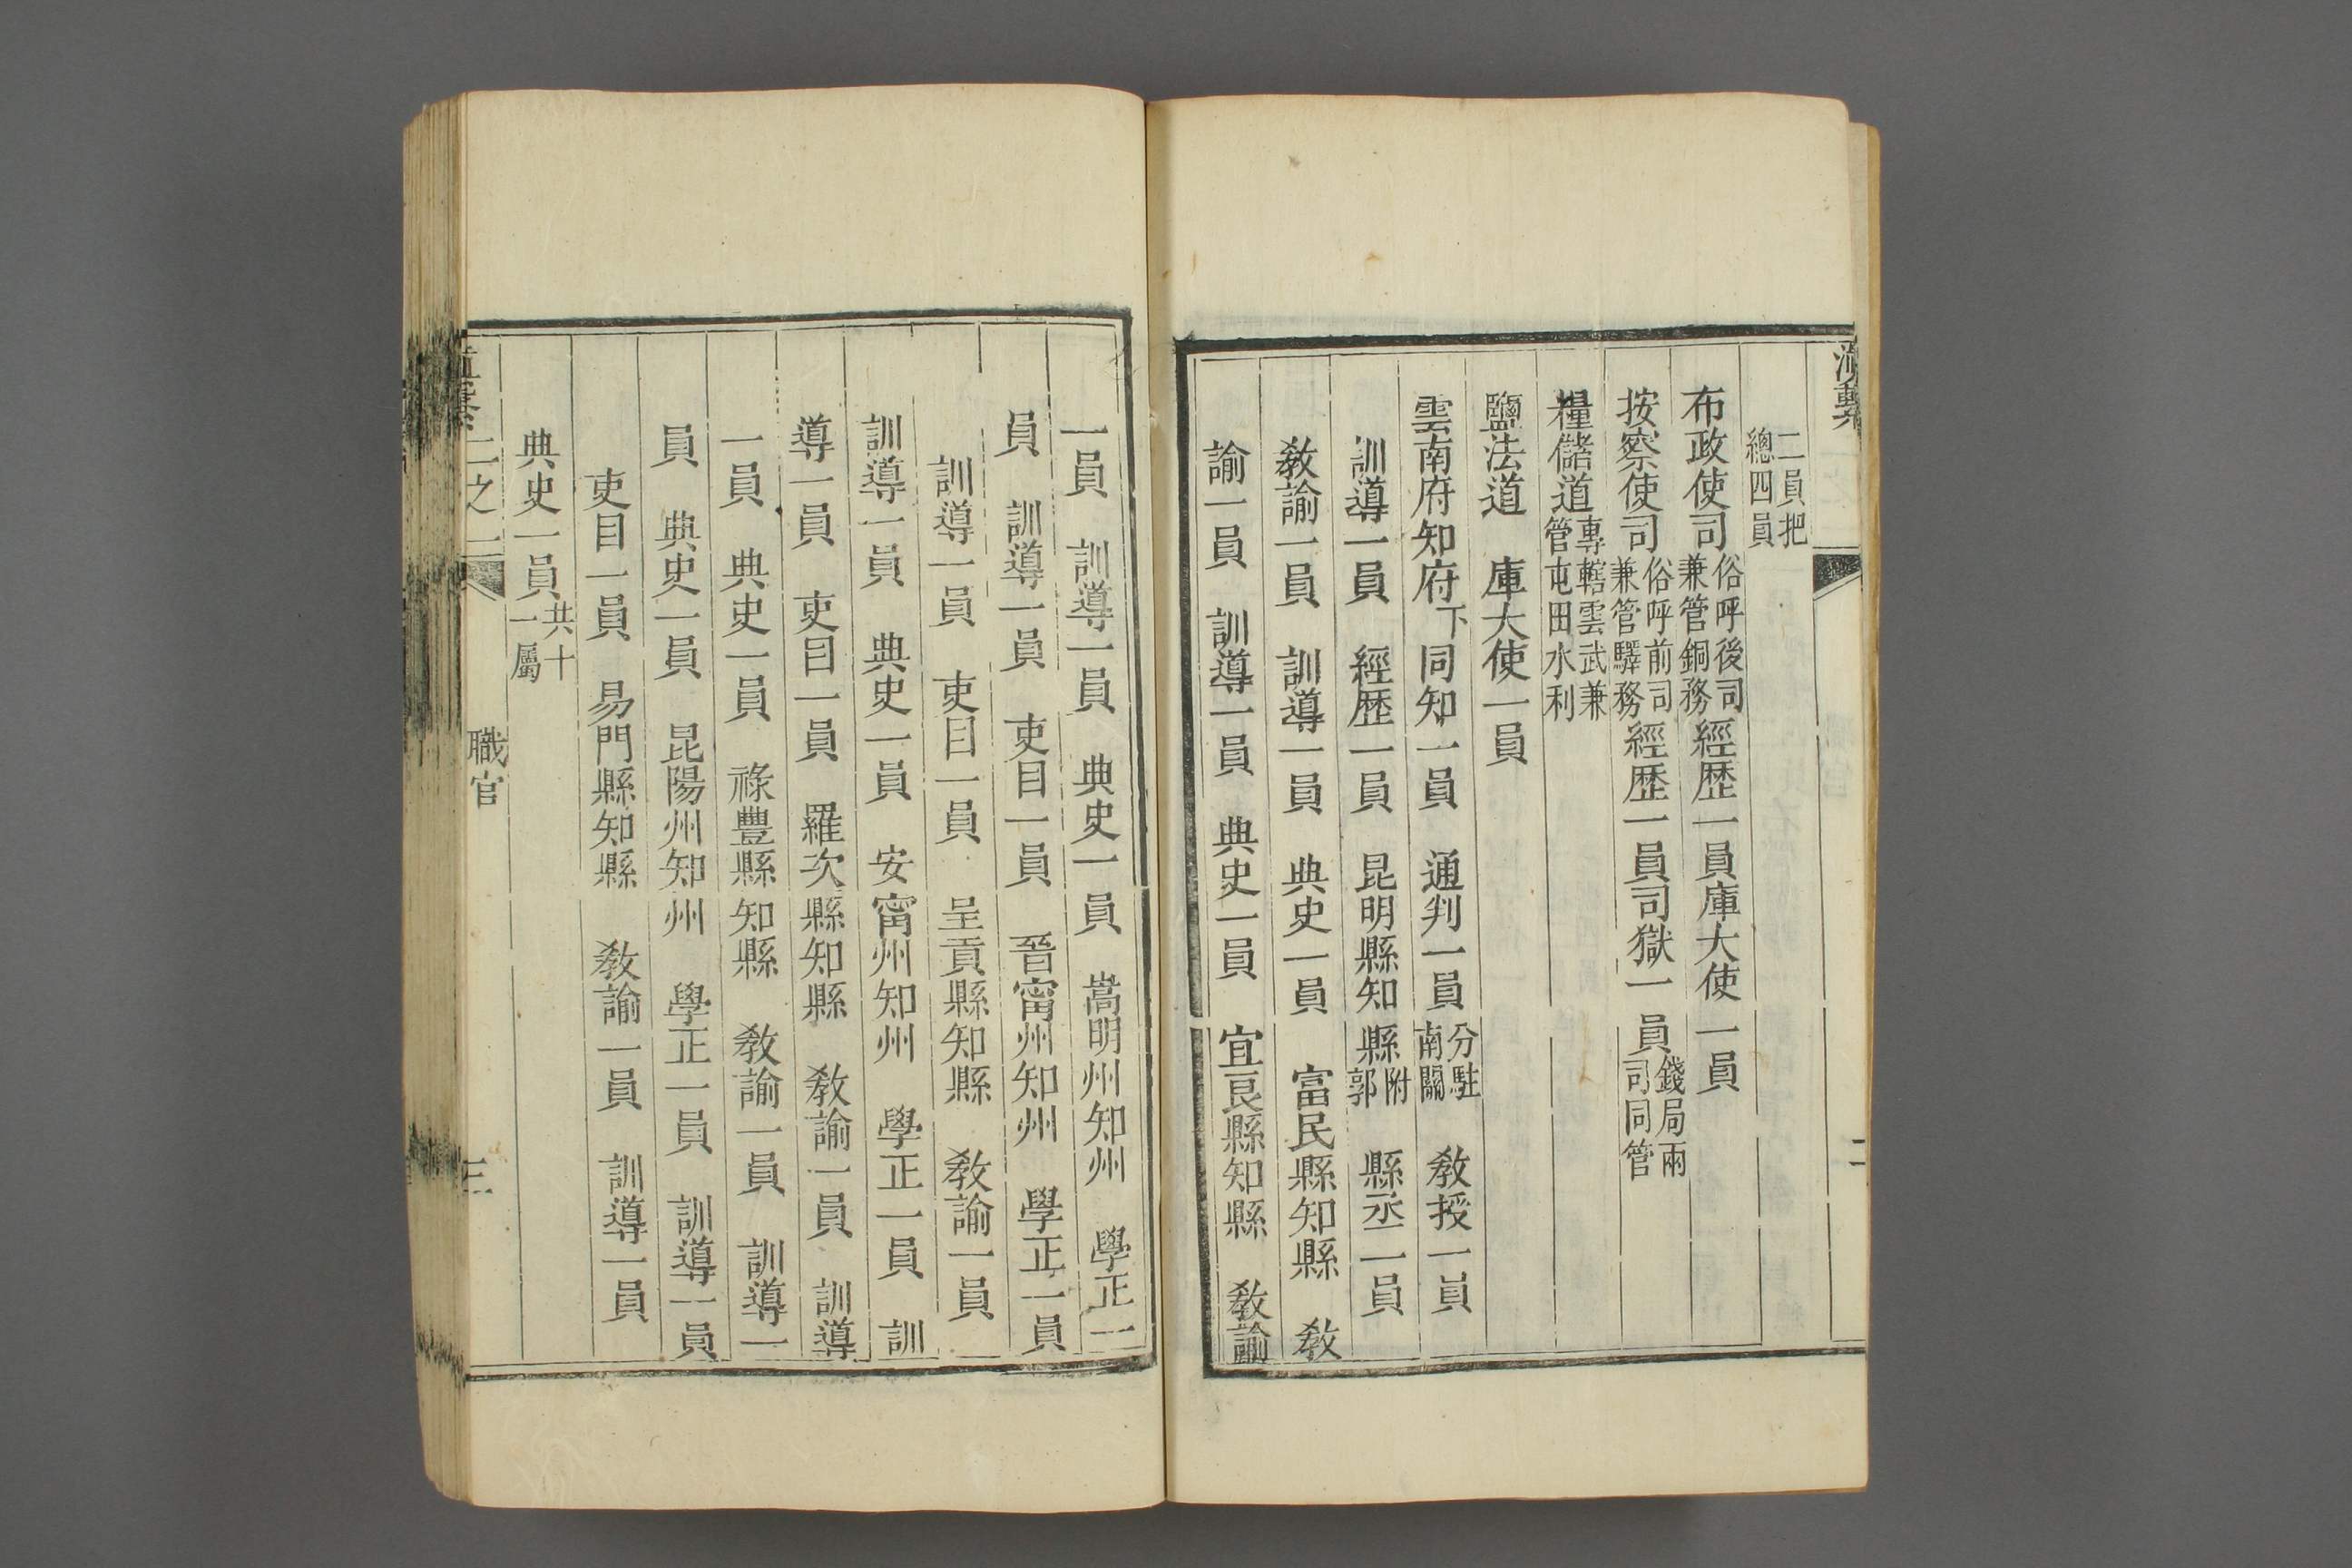 滇繫
二員把
總四員
布政使司俗呼後司兼管銅務經歷一員庫大使一員
按察使司俗呼前司兼管驛務經歷一員司獄一員錢局兩司同管
糧儲道專轄雲武兼管屯田水利
鹽法道 庫大使一員
雲南府知府下同知一員 通判一員分駐南關 教授一員
訓導一員 經歷一員 昆明縣知縣附郭 縣丞一員
教諭一員 訓導一員 典史一員 富民縣知縣 教
諭一員 訓導一員 典史一員 宜良縣知縣 教諭
二
一員 訓導一員 典史一員 嵩明州知州 學正一
員 訓導一員 吏目一員 晉甯州知州 學正一員
訓導一員 吏目一員 呈貢縣知縣 教諭一員
訓導一員 典史一員 安甯州知州 學正一員 訓
導一員 吏目一員 羅次縣知縣 教諭一員 訓導
一員 典史一員 祿豐縣知縣 教諭一員 訓導一
員 典史一員 昆陽州知州 學正一員 訓導一員
吏目一員 易門縣知縣 教諭一員 訓導一員
典史一員共十一屬
二之二 職官 三